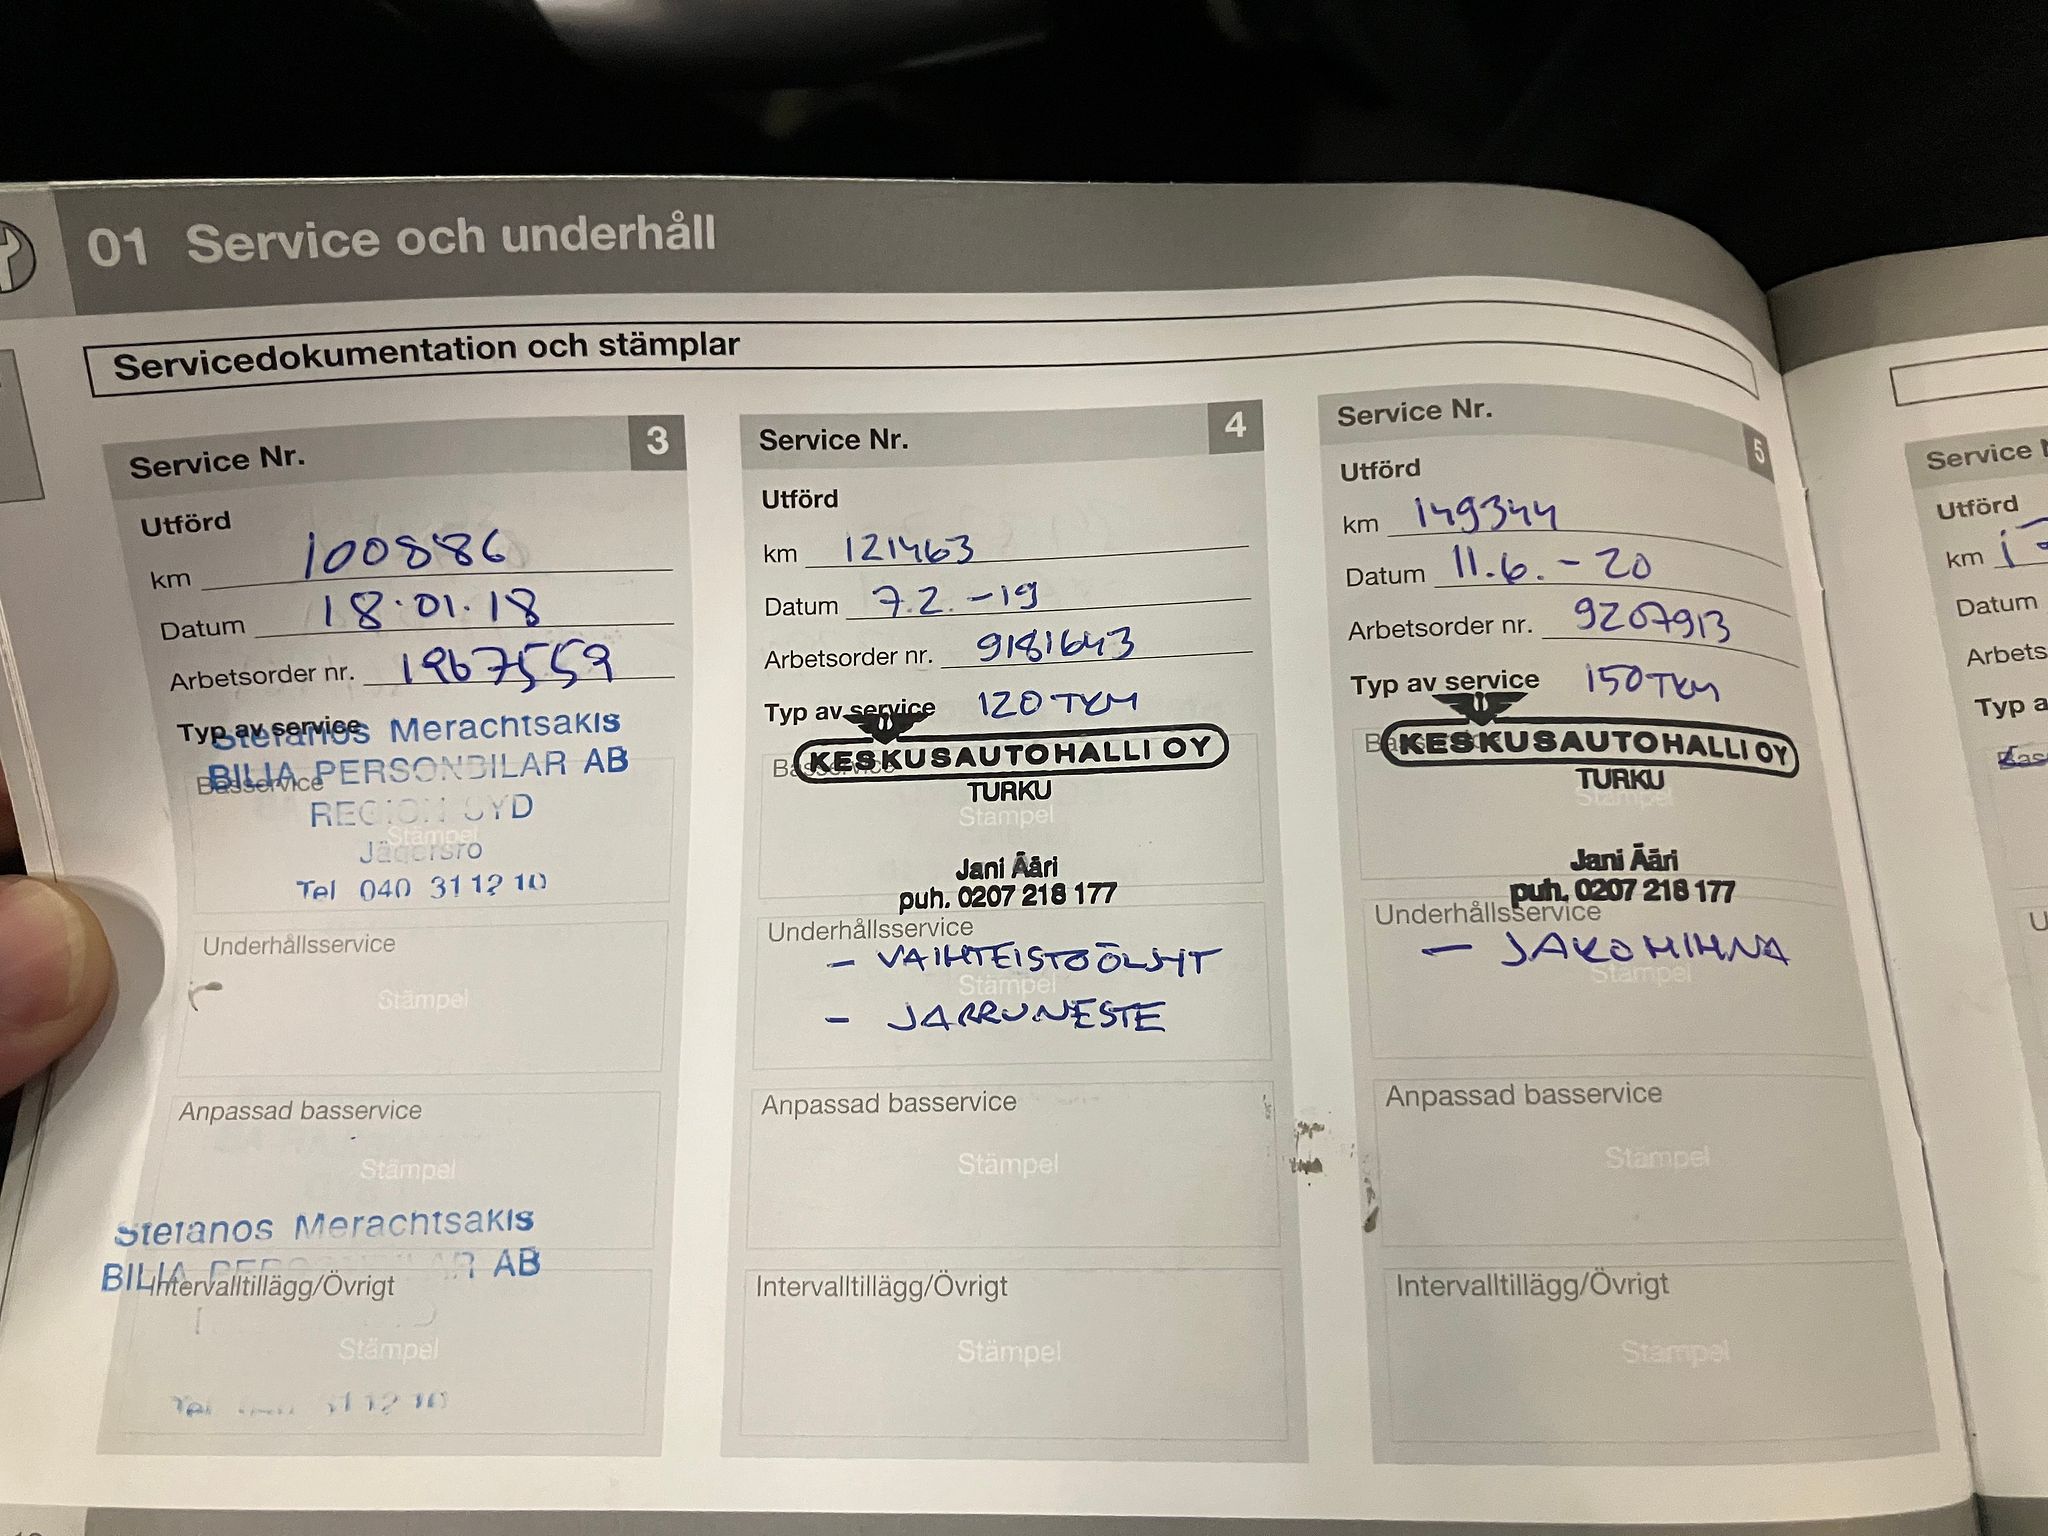 01 Service och underhåll
Servicedokumentation och stämplar
Service Nr. 3
Utförd
km 100886
Datum 18.01.18
Arbetsorder nr. 1967559
Typ av service
Stefanos Merachtsakis
BILIA PERSONBILAR AB
Basservice
REGION SYD
Stämpel
Jägersro
Tel 040 31 12 10
Underhållsservice
Stämpel
Anpassad basservice
Stämpel
Stefanos Merachtsakis
BILIA PERSONBILAR AB
Intervalltillägg/Övrigt
Stämpel
Tel 31 12 10
Service Nr. 4
Utförd
km 121463
Datum 7.2.-19
Arbetsorder nr. 9181643
Typ av service 120 TKM
Basservice
KESKUSAUTOHALLI OY
TURKU
Stämpel
Jani Ääri
puh. 0207 218 177
Underhållsservice
- VAIHTEISTOÖLJYT
Stämpel
- JARRUNESTE
Anpassad basservice
Stämpel
Intervalltillägg/Övrigt
Stämpel
Service Nr. 5
Utförd
km 149344
Datum 11.6.-20
Arbetsorder nr. 9207913
Typ av service 150 TKM
KESKUSAUTOHALLI OY
TURKU
Stämpel
Jani Ääri
puh. 0207 218 177
Underhållsservice
- JAKOHIHNA
Stämpel
Anpassad basservice
Stämpel
Intervalltillägg/Övrigt
Stämpel
Service
Utförd
km
Datum